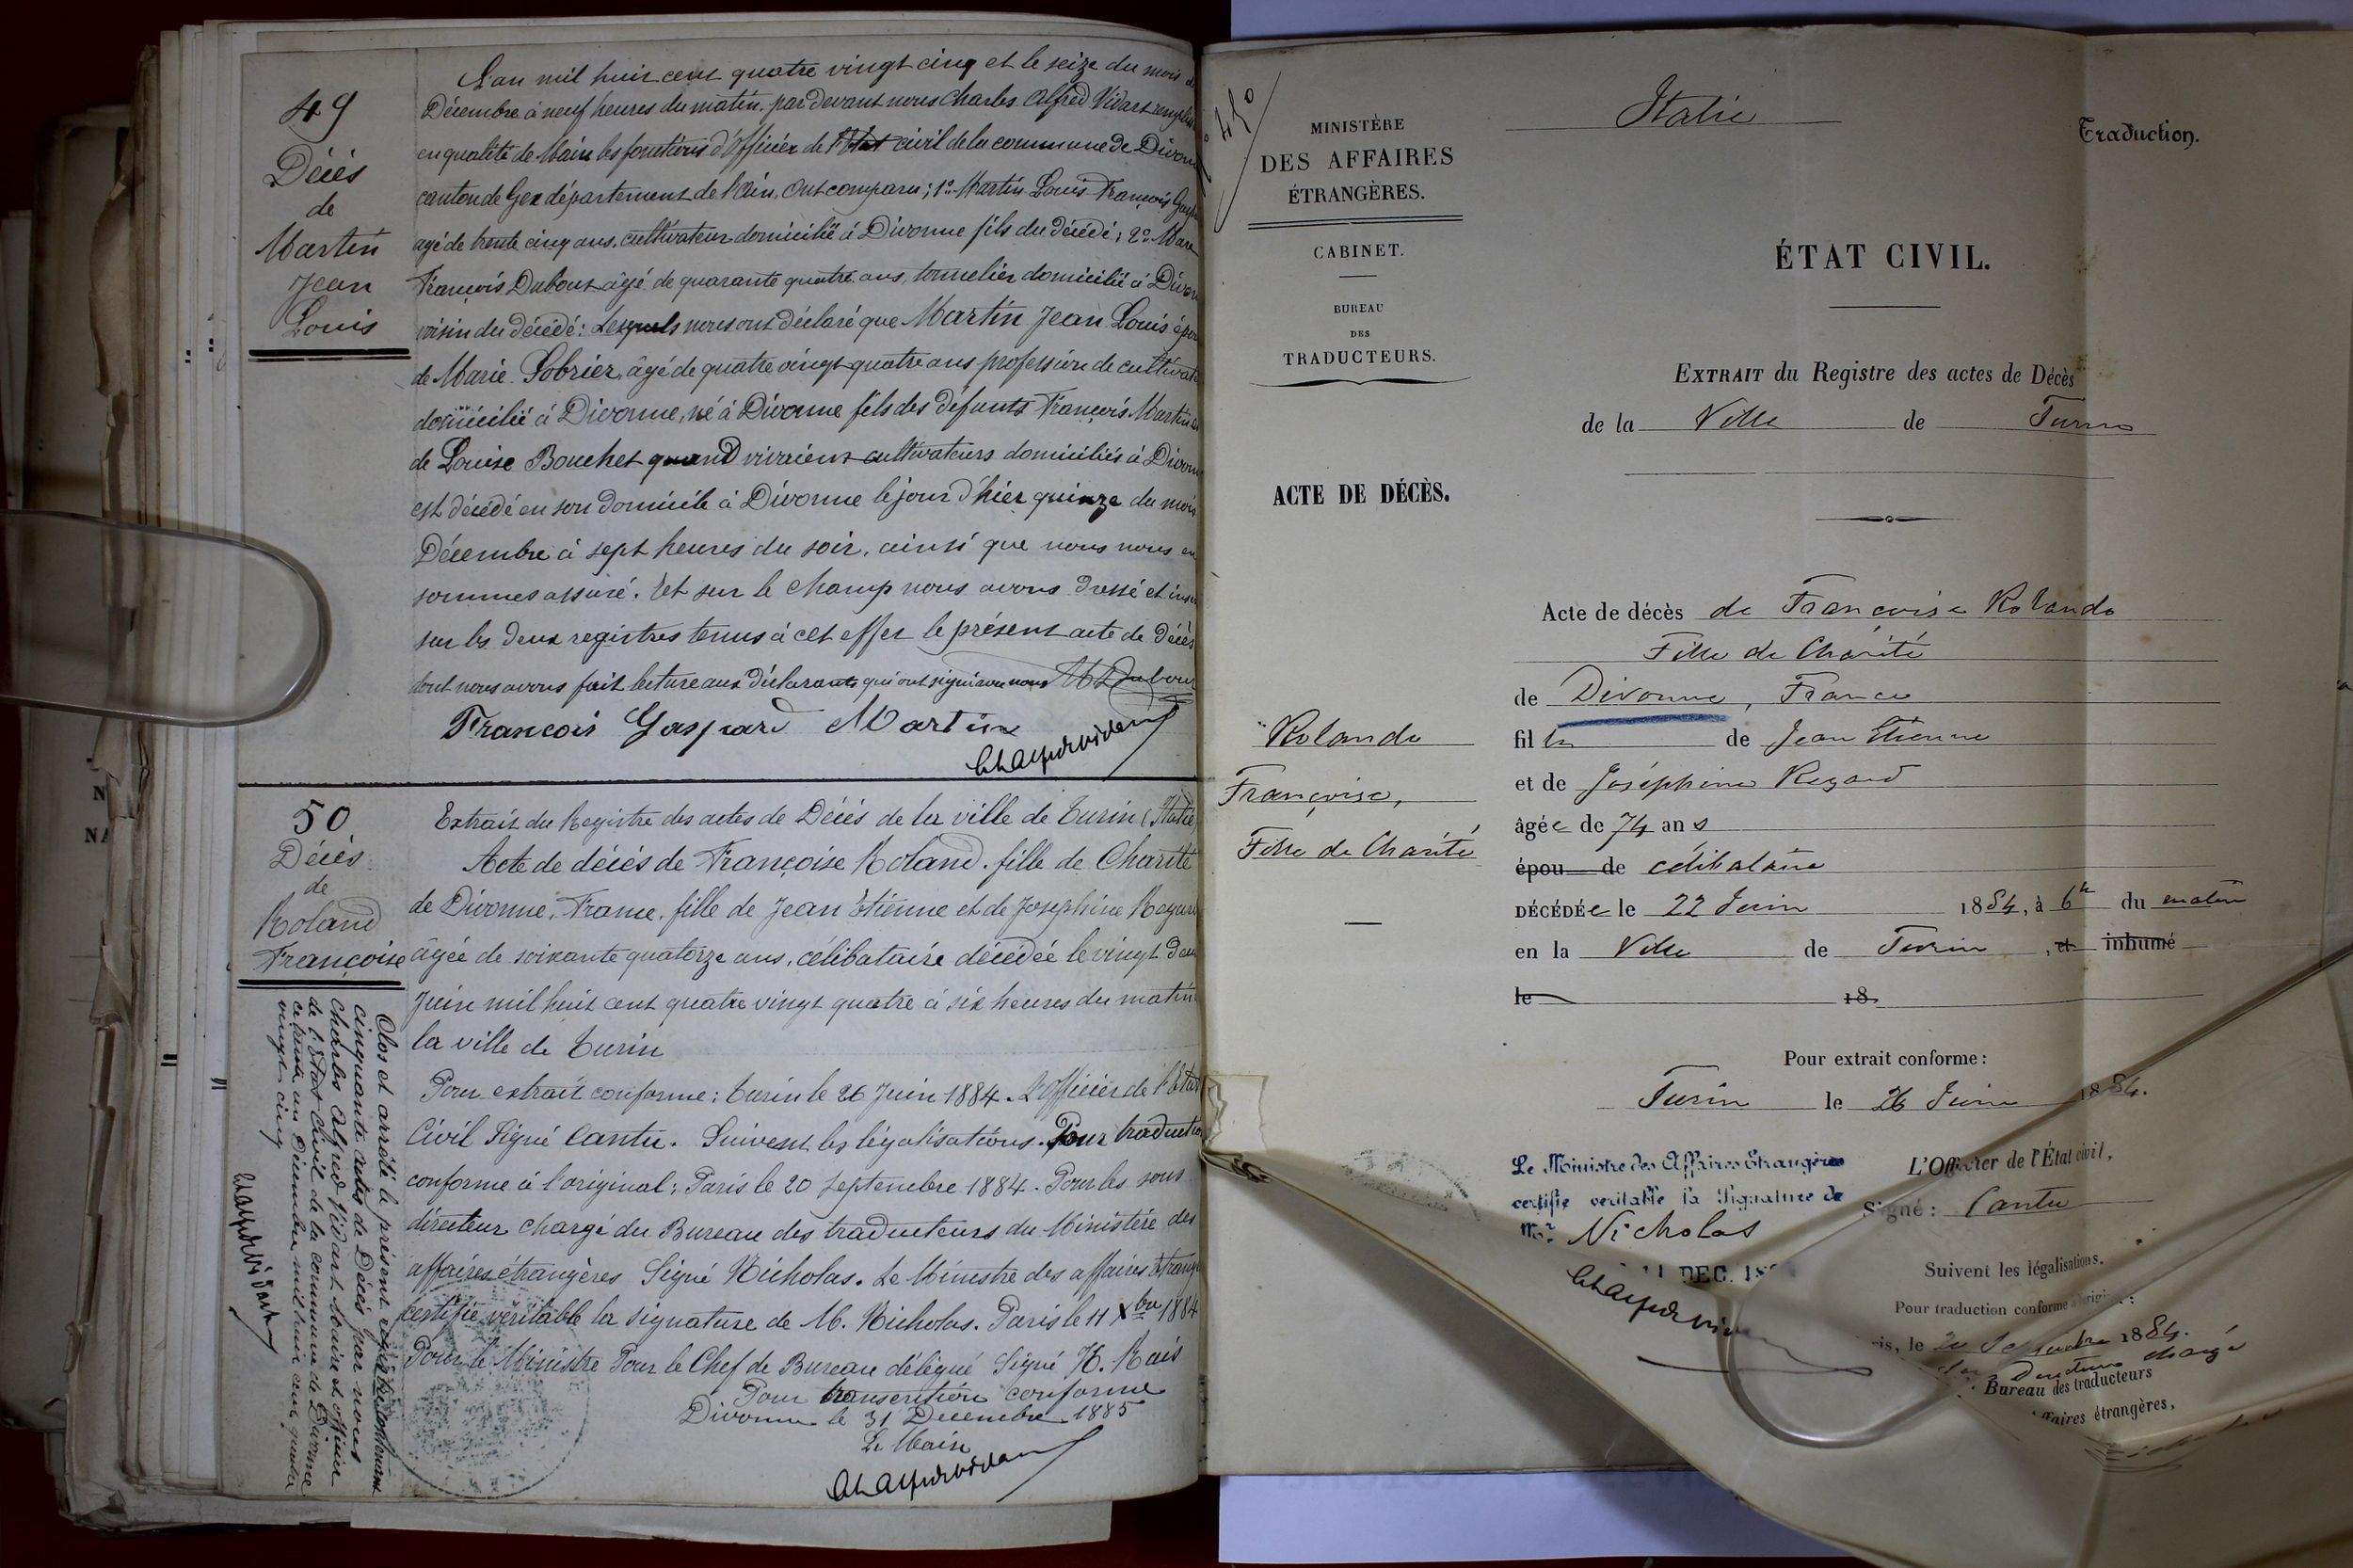 49
Décès
de
Martin
Jean
Louis
L'an mil huit cent quatre vingt cinq et le seize du mois de
Décembre à neuf heures du matin par devant nous Charles Alfred Vidart
en qualité de Maire les fonctions d'officier de l'Etat civil de la commune de Divonne
canton de Gex département de l'Ain, Ont comparu; 1º Martin Louis François
agé de trente cinq ans, cultivateur domicilié à Divonne fils du décédé; 2º Marc
François Dubout âgé de quarante quatre ans, tonnelier domicilié à Divonne
voisin du décédé: Lesquels nous ont déclaré que Martin Jean Louis époux
de Marie Sobrier, âgé de quatre vingt quatre ans profession de cultivat
domicilié à Divonne, né à Divonne fils des défunts François Martin et
de Louise Bouchet quand vivaient cultivateurs domiciliés à Divonne
est décédé en son domicile à Divonne le jour d'hier quinze du mois
Décembre à sept heures du soir, ainsi que nous nous en
sommes assuré. Et sur le champ nous avons dressé et inscrit
sur les deux registres tenus à cet effet le présent acte de décès
dont nous avons fait lecture aux déclarants qui ont signé avec nous
François Gaspard Martin
50
Décès
de
Roland
Françoise
Extrait du Registre des actes de Décès de la ville de Turin (Italie)
Acte de décès de Françoise Roland. fille de Charité
de Divonne, France, fille de Jean Etienne et de Josephine Regard
âgée de soixante quatorze ans, célibataire décédée le vingt deux
Juin mil huit cent quatre vingt quatre à six heures du matin
la ville de Turin
Pour extrait conforme: Turin le 26 Juin 1884. L'officier de l'Etat
Civil Signé Cantu. Suivent les légalisations. Pour traduction
conforme à l'original; Paris le 20 septembre 1884. Pour les sous
directeur chargé du Bureau des traducteurs du Ministère des
affaires étrangères Signé Nicholas. Le Ministre des affaires étrang
certifie véritable la signature de M. Nicholas. Paris le 11 Xbre 1884
Pour le Ministre Pour le Chef de Bureau délégué Signé H. Rais
Pour transcription conforme
Divonne le 31 Décembre 1885
Le Maire
Clos et arrêté le présent registre contenant
cinquante actes de Décès par nous
Charles Alfred Vidart Maire et officier
de l'Etat Civil de la commune de Divonne
ce trente un Décembre mil huit cent quatre
vingt cinq
MINISTÈRE
DES AFFAIRES
ÉTRANGÈRES.
CABINET.
BUREAU
DES
TRADUCTEURS.
ACTE DE DÉCÈS.
Rolando
Françoise,
Fille de Charité
Italie
Traduction.
ÉTAT CIVIL.
EXTRAIT du Registre des actes de Décès
de la Ville de Turin
Acte de décès de Françoise Rolando
Fille de Charité
de Divonne, France
fille de Jean Etienne
et de Joséphine Regard
âgée de 74 ans
épou de célibataire
DÉCÉDÉe le 22 Juin 1884, à 6h du matin
en la Ville de Turin, et inhumé
le 18
Pour extrait conforme:
Turin le 26 Juin 1884.
L'Officier de l'État civil,
Signé: Cantu
Le Ministre des Affaires Etrangères
certifie véritable la Signature de
Mr Nicholas
11 DEC. 18
Suivent les légalisations.
Pour traduction conforme
is, le 20 Septembre 1884.
Directeur chargé
Bureau des traducteurs
ffaires étrangères,